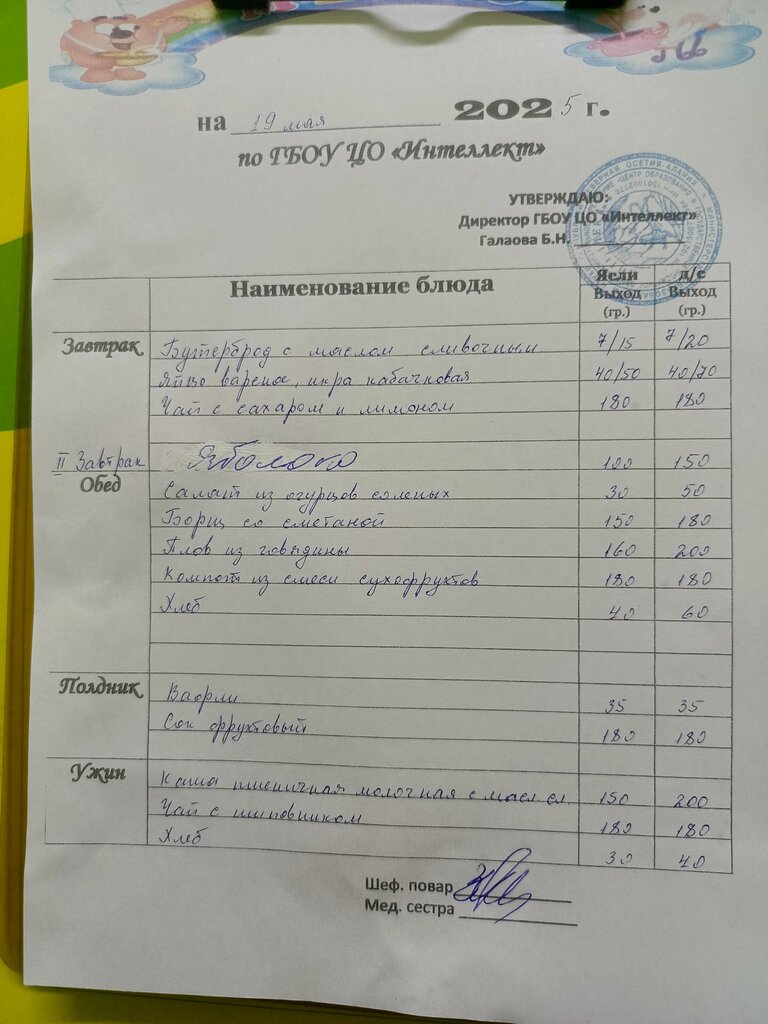 на 19 мая 2025 г.
по ГБОУ ЦО «Интеллект»
УТВЕРЖДАЮ:
Директор ГБОУ ЦО «Интеллект»
Галаова Б.Н.
Наименование блюда Ясли Выход (гр.) д/с Выход (гр.)
Завтрак Бутерброд с маслом сливочным 7/15 7/20
Яйцо вареное, икра кабачковая 40/50 40/70
Чай с сахаром и лимоном 180 180
II Завтрак Яблоко 100 150
Обед Салат из огурцов соленых 30 50
Борщ со сметаной 150 180
Плов из говядины 160 200
Компот из смеси сухофруктов 180 180
Хлеб 40 60
Полдник Вафли 35 35
Сок фруктовый 180 180
Ужин Каша пшеничная молочная с масл. сл. 150 200
Чай с шиповником 180 180
Хлеб 30 40
Шеф. повар
Мед. сестра